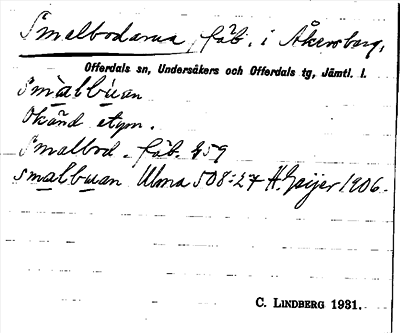 Smalbodarna, fäb. i Åkersberg,
Offerdals sn, Undersåkers och Offerdals tg, Jämtl. l.
Smàlbúan
Okänd etym.
Smalbod - fäb. GS9
smalbuan Ulma 508:27 H. Geijer 1906.
C. LINDBERG 1931.